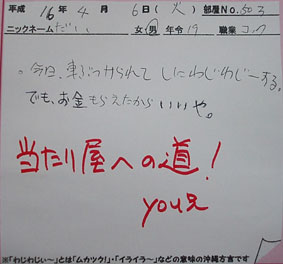 平成 16年 4月 6日(火) 部屋No.503
ニックネームだい 女・男 年令19 職業コック
。今日、車ぶつけられて しにわじわじーする。
でも、お金もらえたから いいや。
当たり屋への道!
you兄
※「わじわじぃ〜」とは「ムカツク!」・「イライラ〜」などの意味の沖縄方言です